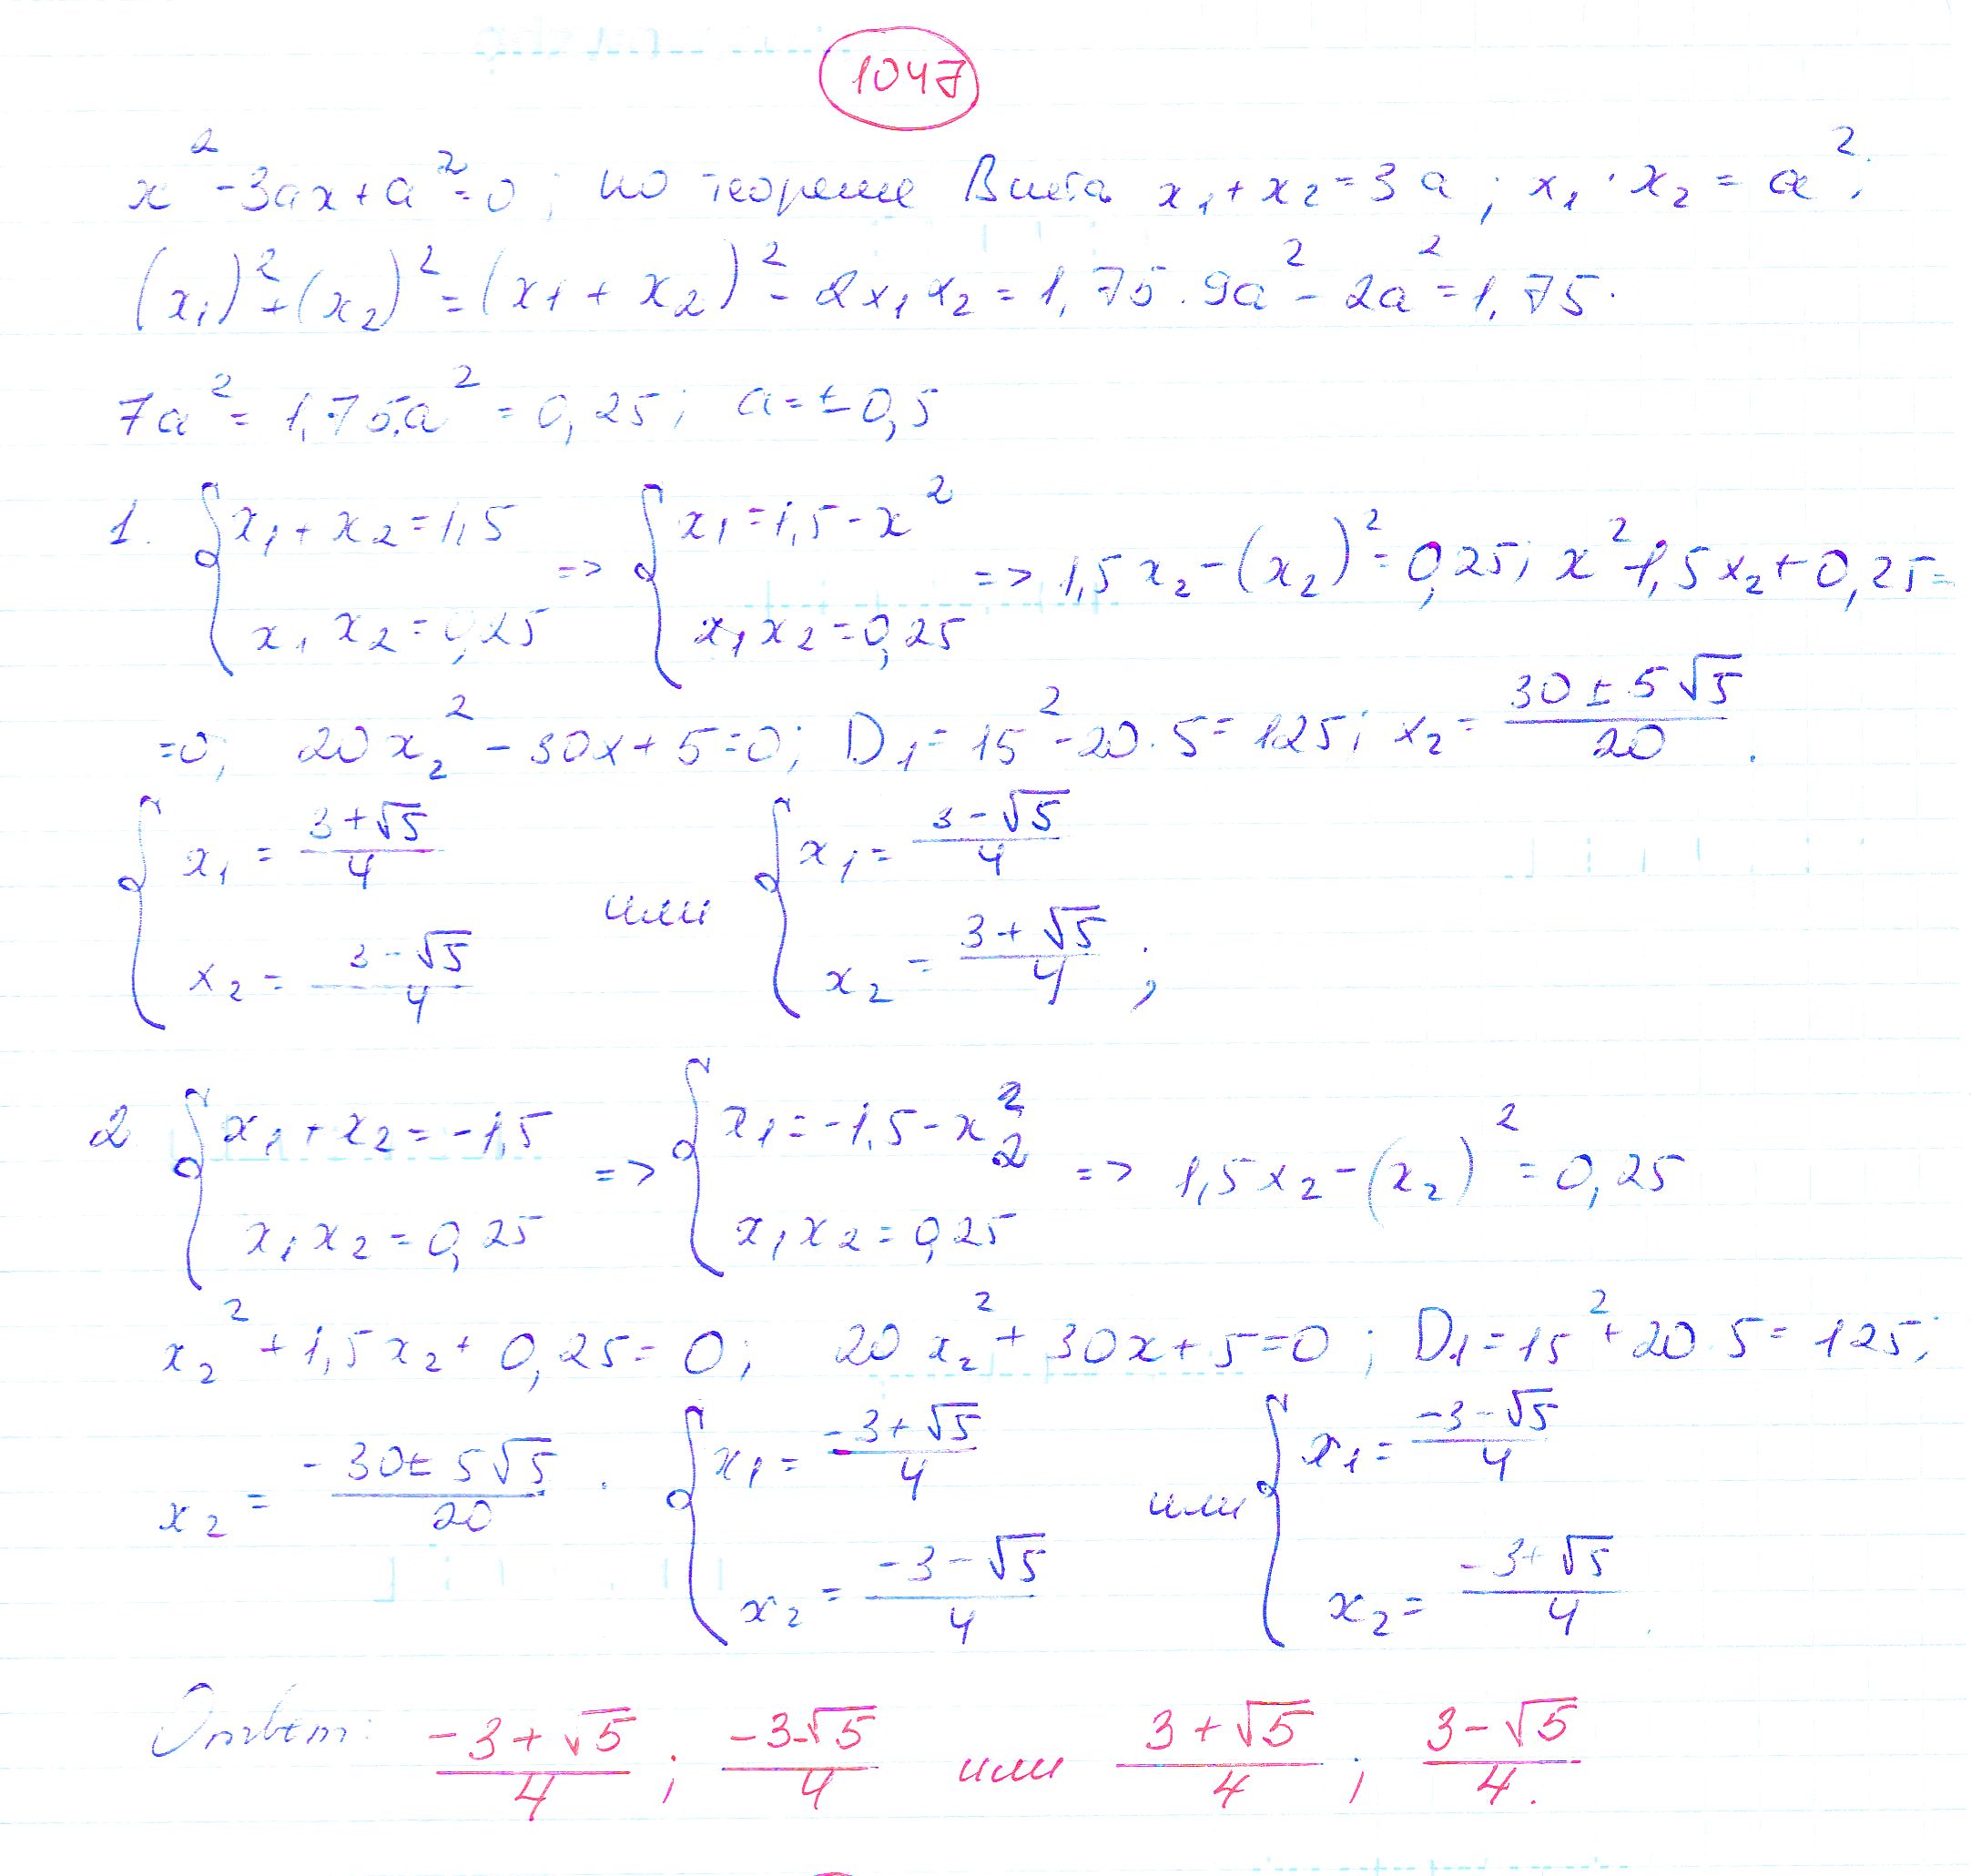 1047
x² - 3ax + a² = 0; по теореме Виета x₁ + x₂ = 3a; x₁ · x₂ = a².
(x₁)² + (x₂)² = (x1 + x₂)² - 2x₁x₂ = 1,75. 9a² - 2a² = 1,75.
7a² = 1,75. a² = 0,25; a = ± 0,5
1. { x₁ + x₂ = 1,5 ; x₁ x₂ = 0,25 => { x₁ = 1,5 - x² ; x₁ x₂ = 0,25 => 1,5 x₂ - (x₂)² = 0,25; x² - 1,5 x₂ + 0,25 =
= 0; 20 x₂² - 30x + 5 = 0; D₁ = 15² - 20 · 5 = 125; x₂ = (30 ± 5√5)/20 .
{ x₁ = (3 + √5)/4 ; x₂ = (3 - √5)/4 или { x₁ = (3 - √5)/4 ; x₂ = (3 + √5)/4 ;
2 { x₁ + x₂ = -1,5 ; x₁ x₂ = 0,25 => { x₁ = -1,5 - x₂² ; x₁ x₂ = 0,25 => 1,5 x₂ - (x₂)² = 0,25
x₂² + 1,5 x₂ + 0,25 = 0; 20 x₂² + 30x + 5 = 0; D₁ = 15² + 20 · 5 = 125;
x₂ = (-30 ± 5√5)/20 . { x₁ = (-3 + √5)/4 ; x₂ = (-3 - √5)/4 или { x₁ = (-3 - √5)/4 ; x₂ = (-3 + √5)/4
Ответ: (-3 + √5)/4 ; (-3 - √5)/4 или (3 + √5)/4 ; (3 - √5)/4 .